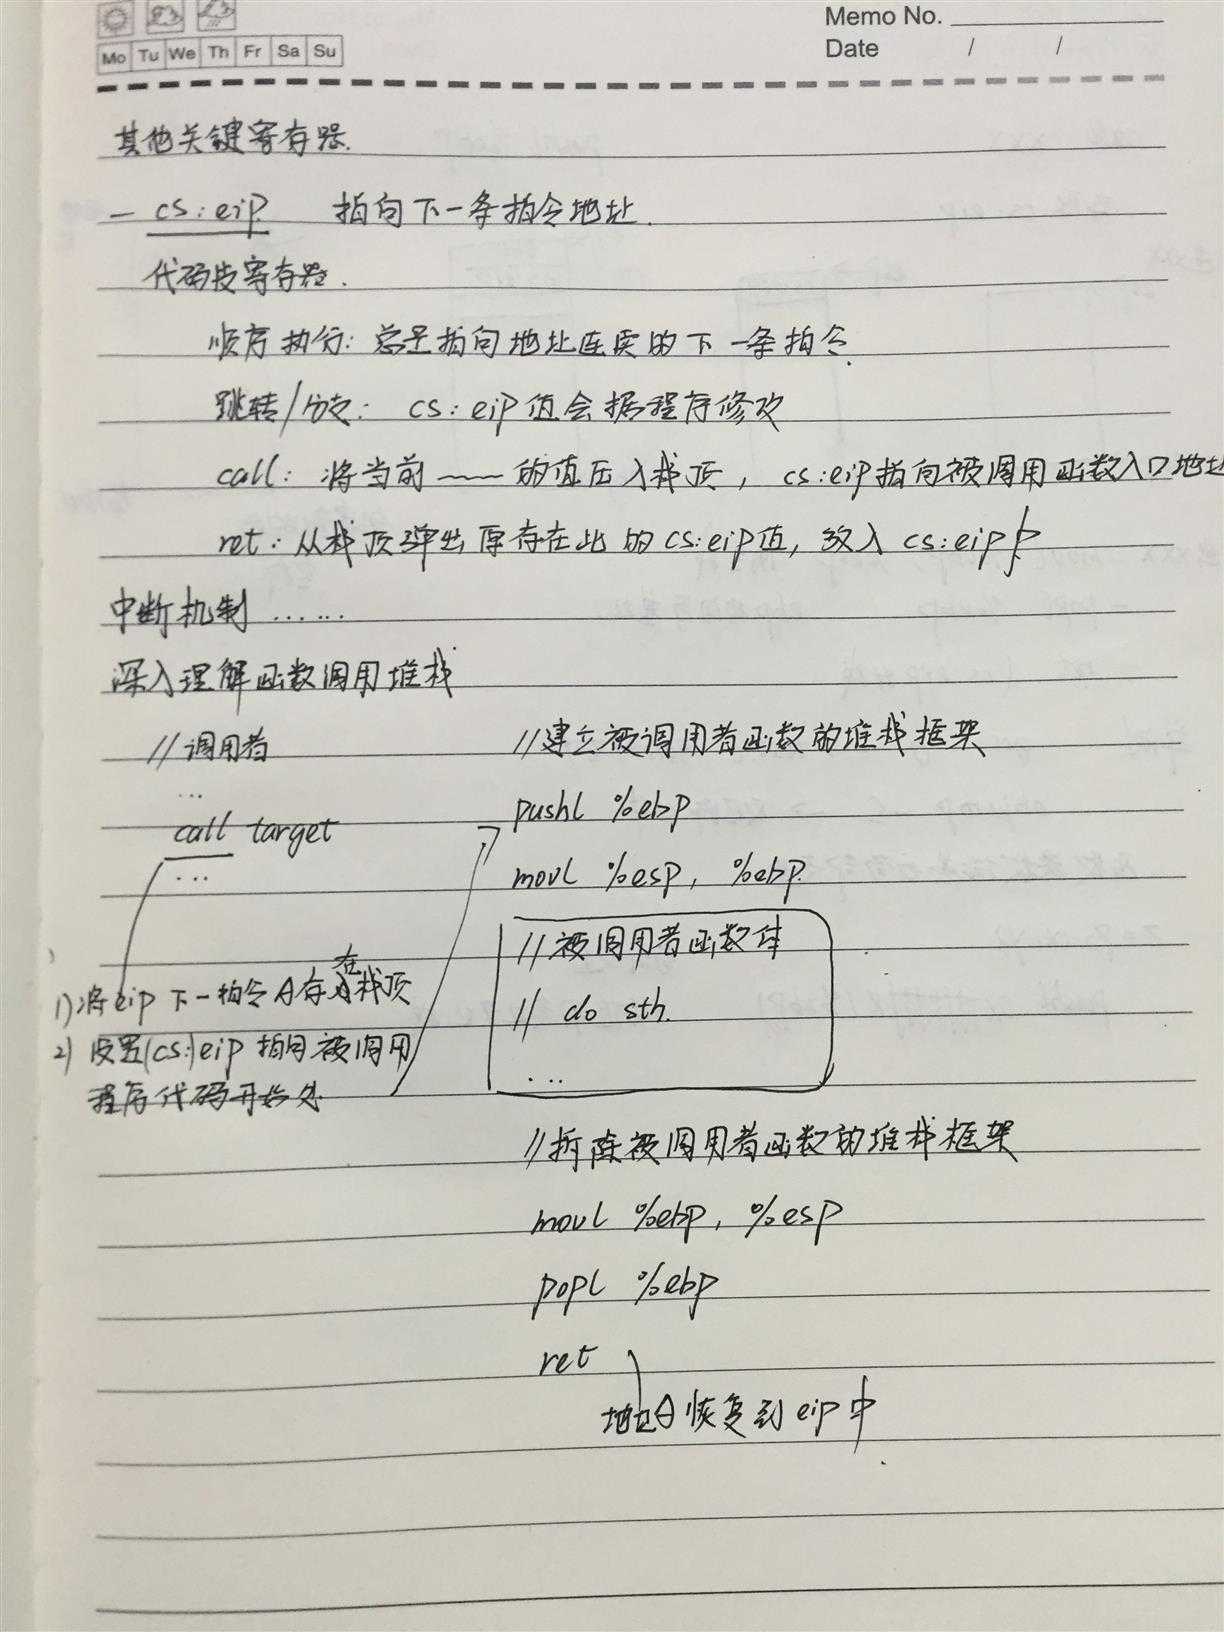 Memo No.
Mo Tu We Th Fr Sa Su
Date / /
其他关键寄存器.
— cs:eip 指向下一条指令地址.
代码段寄存器.
顺序执行: 总是指向地址连续的下一条指令.
跳转/分支: cs:eip值会据程序修改
call: 将当前 —— 的值压入栈顶, cs:eip指向被调用函数入口地址
ret: 从栈顶弹出原存在此的cs:eip值, 放入cs:eip中
中断机制 ......
深入理解函数调用堆栈
//调用者
...
call target
...
1)将eip下一指令A存在栈顶
2)设置(cs:)eip指向被调用
程序代码开始处
//建立被调用者函数的堆栈框架
pushl %ebp
movl %esp, %ebp.
//被调用者函数体
// do sth.
...
//拆除被调用者函数的堆栈框架
movl %ebp, %esp
popl %ebp
ret
地址A恢复到eip中